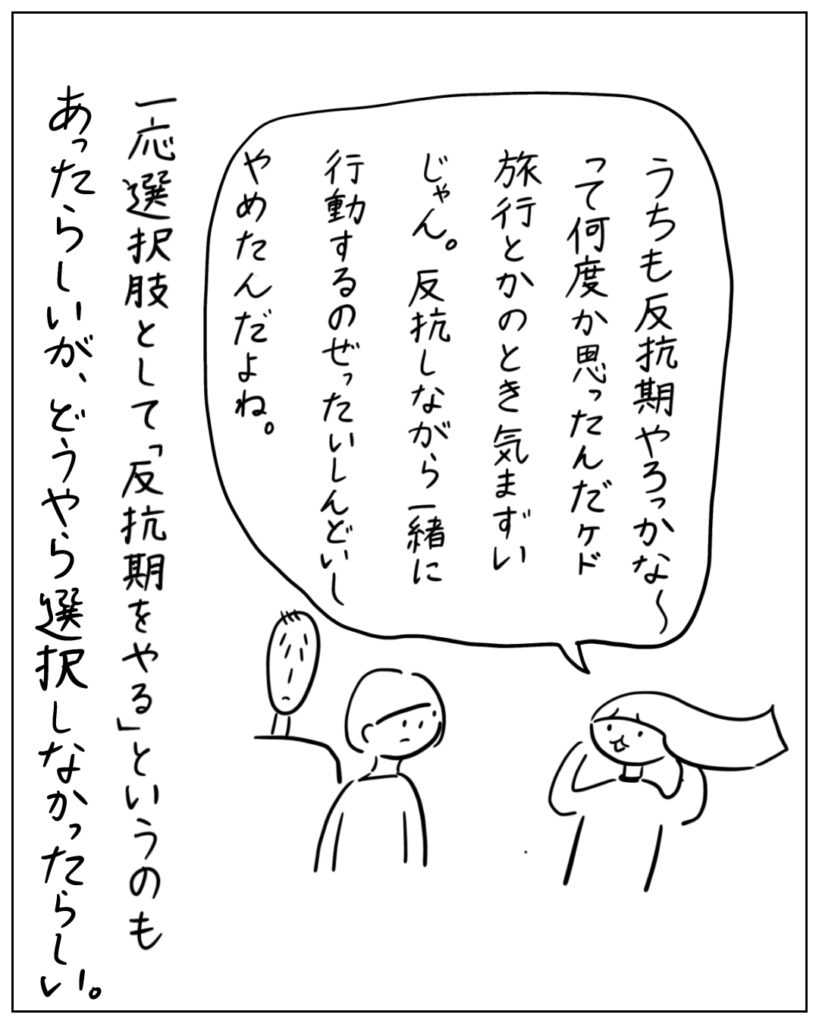 うちも反抗期やろっかな〜
って何度か思ったんだケド
旅行とかのとき気まずい
じゃん。反抗しながら一緒に
行動するのぜったいしんどいー
やめたんだよね。
一応選択肢として「反抗期をやる」というのも
あったらしいが、どうやら選択しなかったらしい。